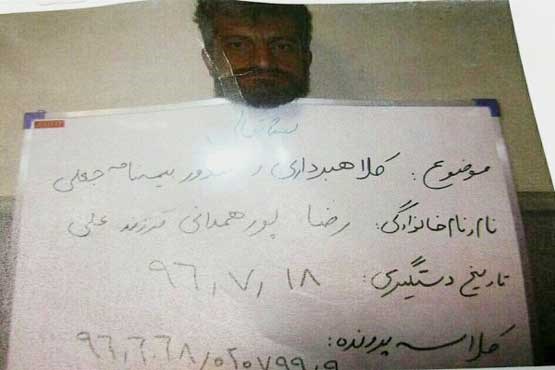 موضوع: کلاهبرداری و صدور بیمه‌نامه جعلی
نام و نام خانوادگی: رضا پور همدانی فرزند علی
تاریخ دستگیری: ۹۶٫۷٫۱۸
کلاسه پرونده: